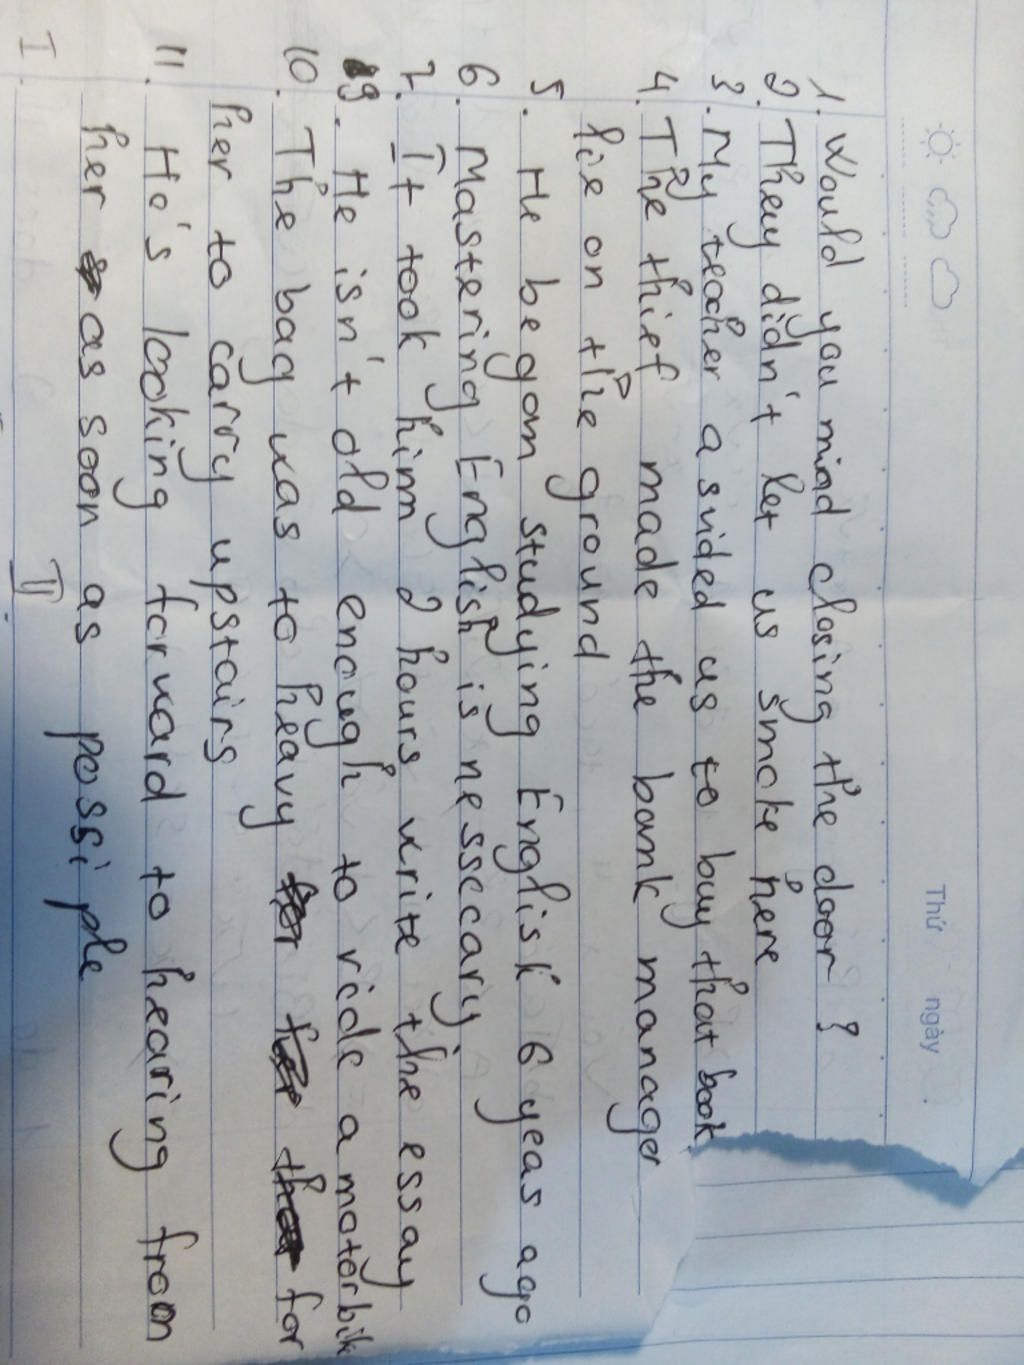 Thứ ngày
1. Would you mind closing the door?
2. They didn't let us smoke here
3. My teacher asvided us to buy that book
4. The thief made the bank manager
lie on the ground
5. He began studying English 6 yeas ago
6. Mastering English is nessecary
7. It took him 2 hours write the essay
9. He isn't old enough to ride a motorbik
10. The bag was to heavy for
her to carry upstairs
11. Ho's looking forward to hearing from
her as soon as possiple
I II